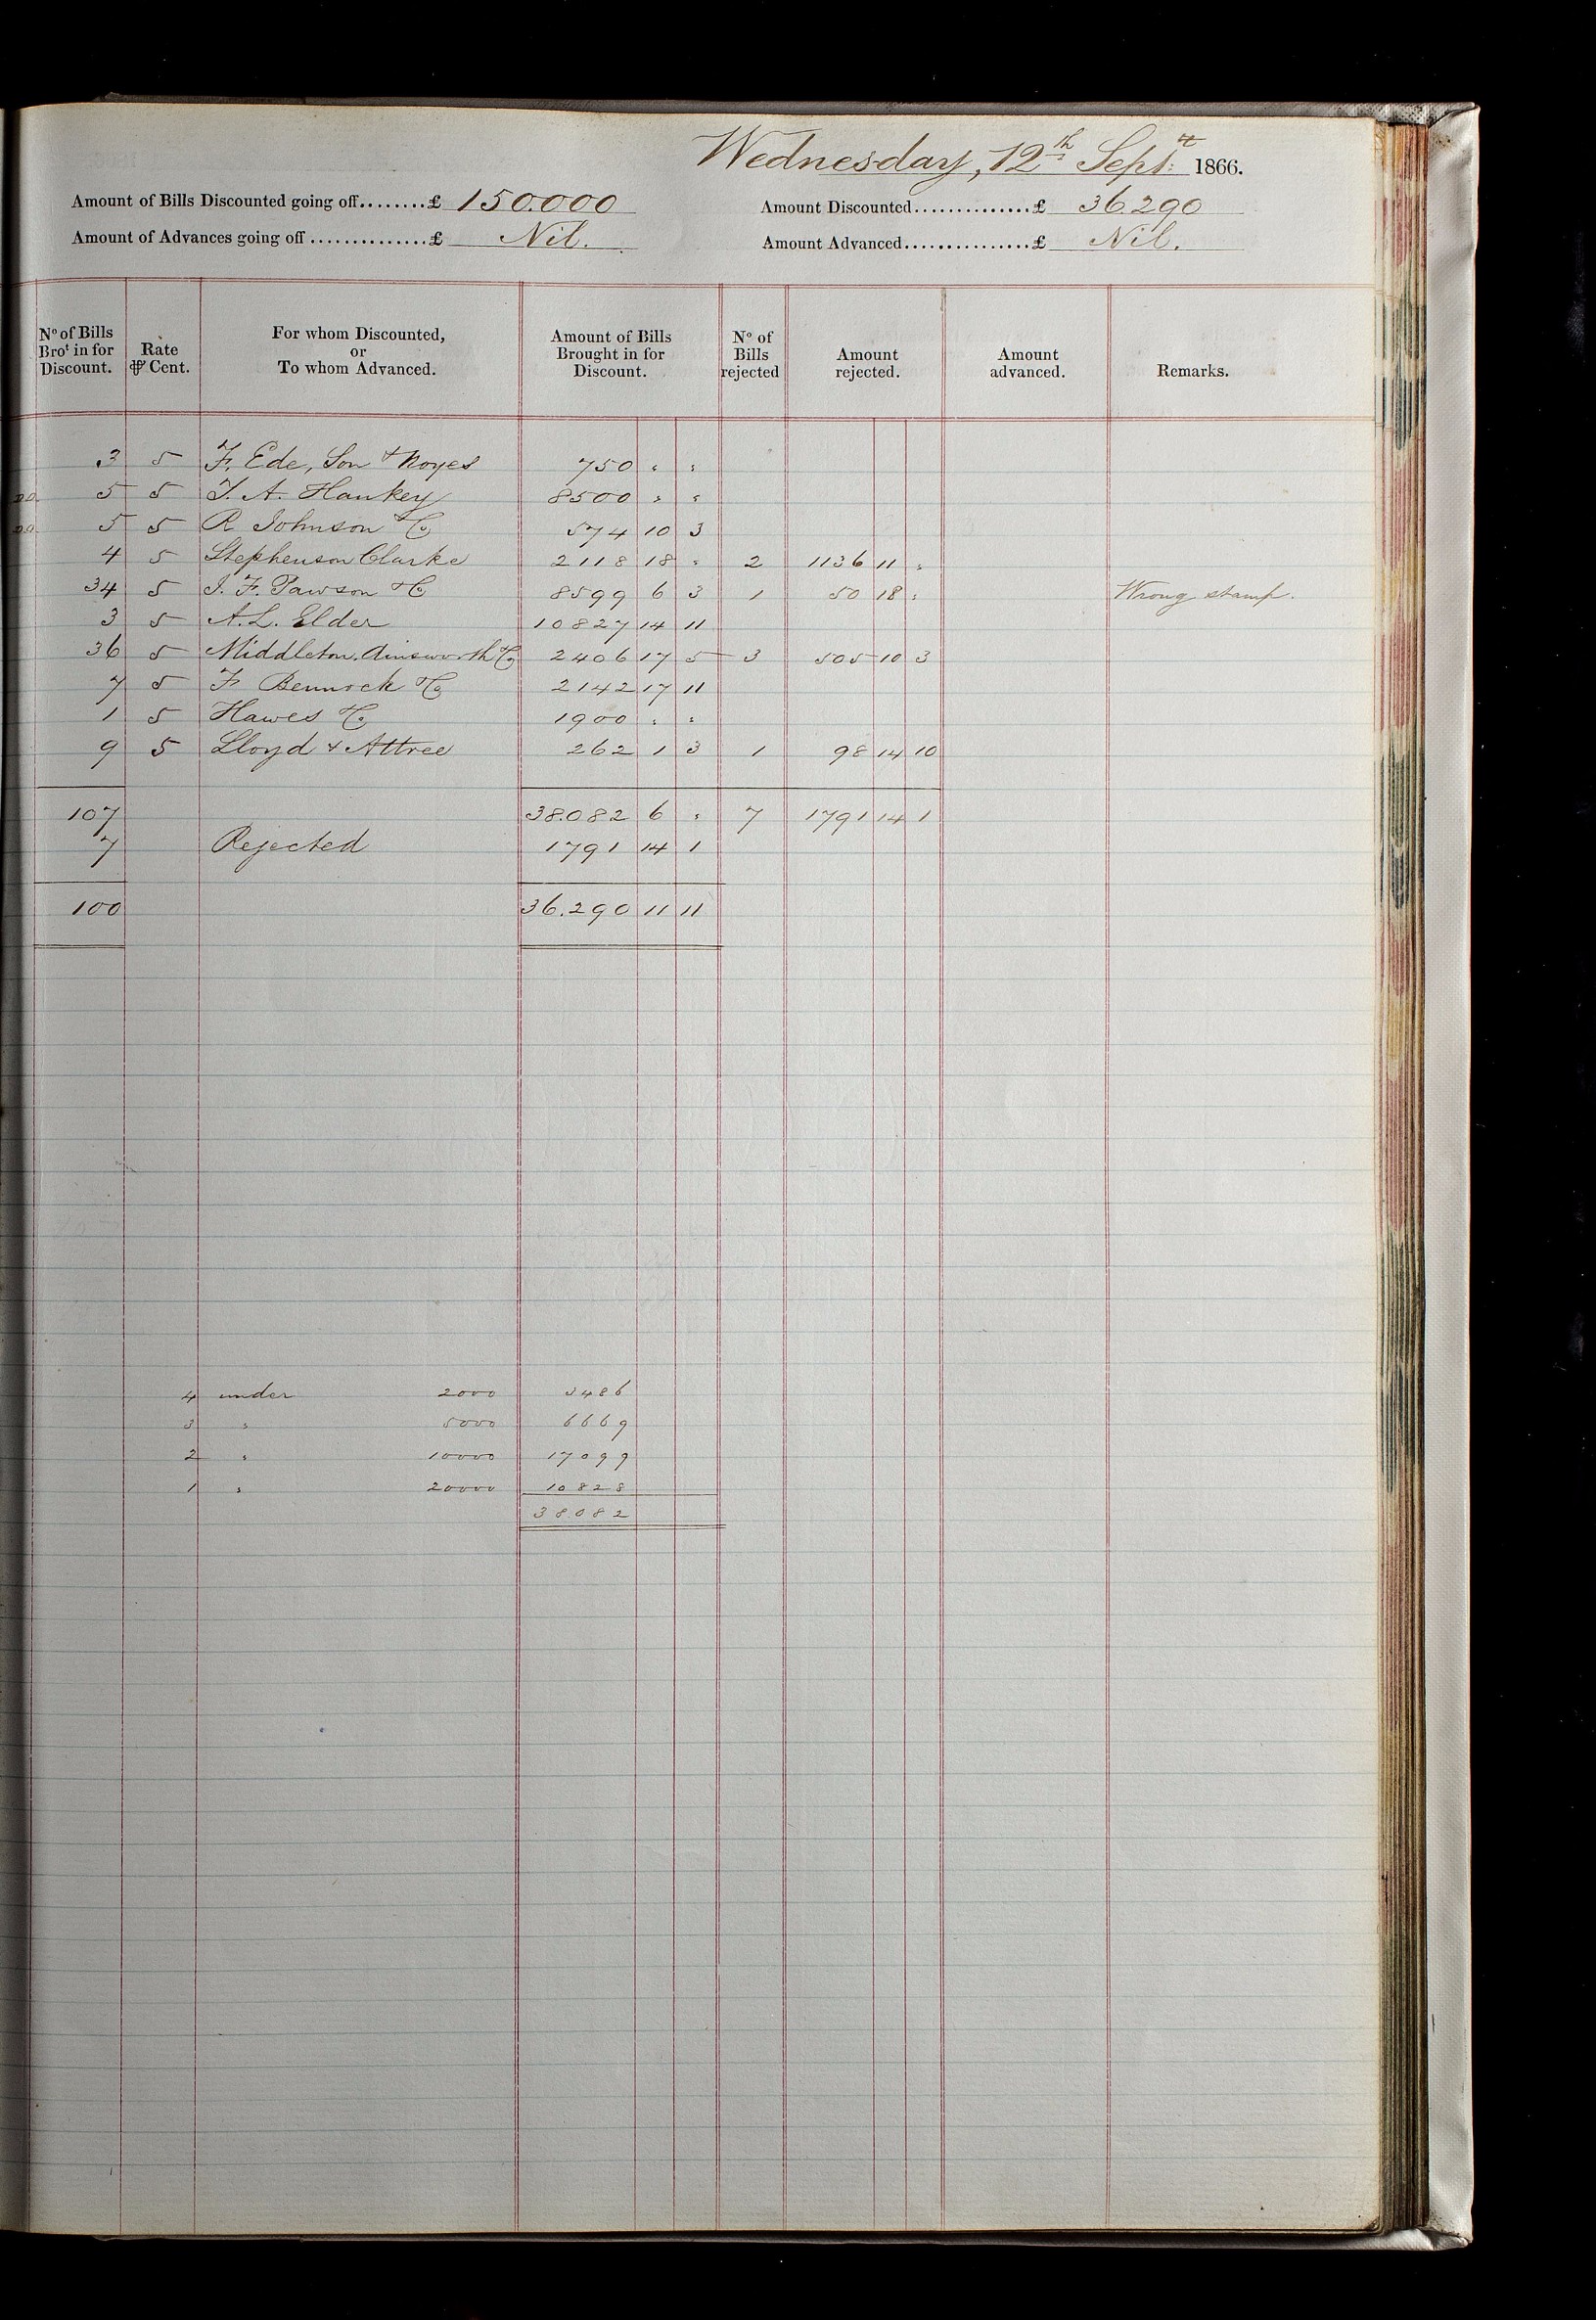 Wednesday, 12th Sept. 1866.
Amount of Bills Discounted going off........£ 150.000 Amount Discounted..............£ 36290
Amount of Advances going off..............£ Nil. Amount Advanced................£ Nil.
No of Bills Brot in for Discount. Rate ⅌ Cent. For whom Discounted, or To whom Advanced. Amount of Bills Brought in for Discount. No of Bills rejected Amount rejected. Amount advanced. Remarks.
3 5 F. Ede, Son & Noyes 750 " "
5 5 T. A. Hankey 8500 " "
5 5 R Johnson & Co 574 10 3
4 5 Stephenson Clarke 2118 18 " 2 1136 11 "
34 5 J. F. Pawson & Co 8599 6 3 1 50 18 " Wrong stamp.
3 5 A. L. Elder 10827 14 11
36 5 Middleton. Ainsworth & Co 2406 17 5 3 505 10 3
7 5 F Bennock & Co 2142 17 11
1 5 Hawes & Co 1900 " "
9 5 Lloyd & Attree 262 1 3 1 98 14 10
107 38.082 6 " 7 1791 14 1
7 Rejected 1791 14 1
100 36.290 11 11
4 under 2000 3486
3 " 5000 6669
2 " 10000 17099
1 " 20000 10828
38082